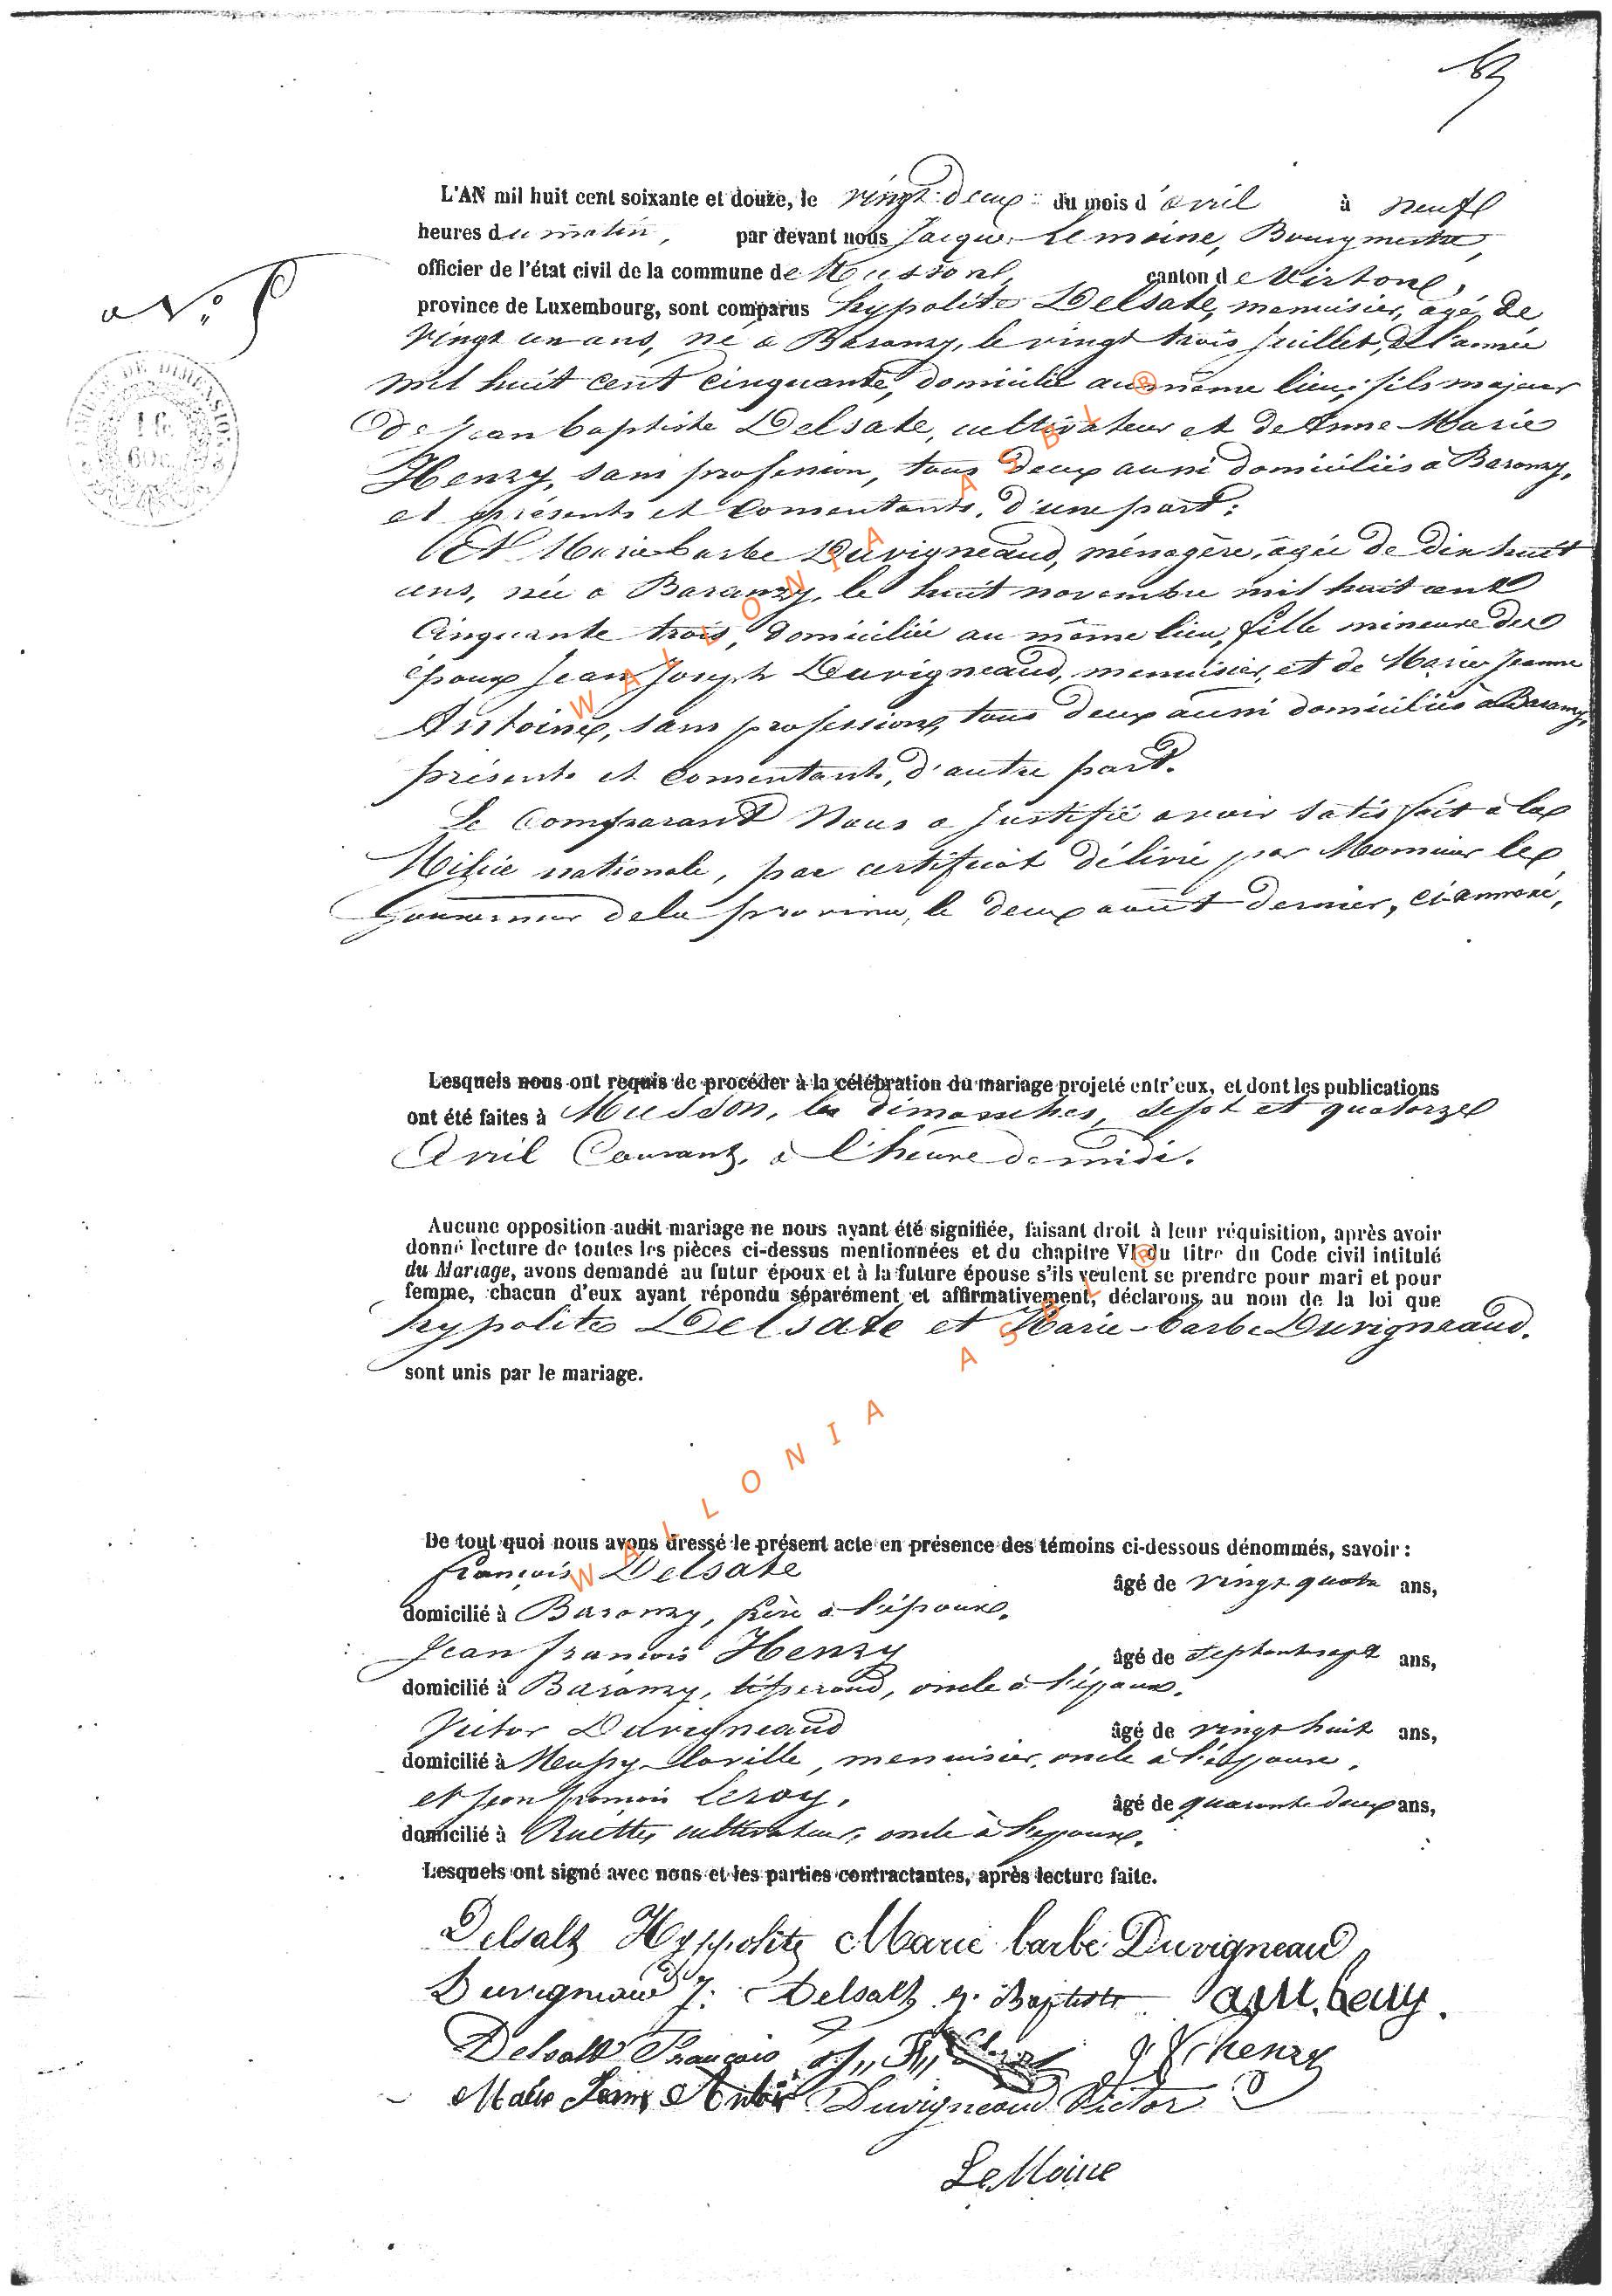 L'AN mil huit cent soixante et douze, le vingt deux du mois d'avril à neuf
heures du matin, par devant nous Jacques Lemoine, Bourgmestre,
officier de l'état civil de la commune de Musson, canton de Virton,
N.º
province de Luxembourg, sont comparus hypolite Delsate, menuisier, agé de
vingt un ans, né à Baranzy, le vingt trois Juillet, de l'année
mil huit cent cinquante, domicilié au même lieu, fils majeur
de Jean baptiste Delsate, cultivateur et de Anne Marie
Henry, sans profession, tous deux aussi domiciliés à Baranzy,
et présents et consentants, d'une part;
Et Marie barbe Duvigneaud, ménagère, âgée de dix huit
ans, née à Baranzy, le huit novembre mil huit cent
Cinquante trois, domiciliée au même lieu, fille mineure des
époux Jean Joseph Duvigneaud, menuisier, et de Marie Jeanne
Antoine, sans profession, tous deux aussi domiciliés à Baranzy,
présents et consentants, d'autre part.
Le Comparant Nous a Justifié avoir satisfait à la
Milice nationale, par certificat délivré par Monsieur le
Gouverneur de la province, le deux août dernier, ci-annexé,
Lesquels nous ont requis de procéder à la célébration du mariage projeté entr'eux, et dont les publications
ont été faites à Musson, les dimanches, sept et quatorze
Avril Courant, à l'heure de midi.
Aucune opposition audit mariage ne nous ayant été signifiée, faisant droit à leur réquisition, après avoir
donné lecture de toutes les pièces ci-dessus mentionnées et du chapitre VI du titre du Code civil intitulé
du Mariage, avons demandé au futur époux et à la future épouse s'ils veulent se prendre pour mari et pour
femme, chacun d'eux ayant répondu séparément et affirmativement, déclarons au nom de la loi que
hypolite Delsate et Marie-barbe Duvigneaud.
sont unis par le mariage.
De tout quoi nous avons dressé le présent acte en présence des témoins ci-dessous dénommés, savoir :
françois Delsate âgé de vingt quatre ans,
domicilié à Baranzy, frère à l'époux.
Jean françois Henry âgé de septante sept ans,
domicilié à Baranzy, oncle à l'époux.
Victor Duvigneaud âgé de vingt huit ans,
domicilié à Meussy, menuisier, oncle à l'épouse,
et Jean françois Leroy, âgé de quarante deux ans,
domicilié à Ruette, cultivateur, oncle à l'épouse.
Lesquels ont signé avec nous et les parties contractantes, après lecture faite.
Delsate Hyppolite Marie barbe Duvigneaud
Duvigneaud J. Delsate J. Baptiste
Delsate François J F henry
Marie Jeanne Antoine Duvigneaud Victor
LeMoine
WALLONIA ASBL ®
WALLONIA ASBL ®